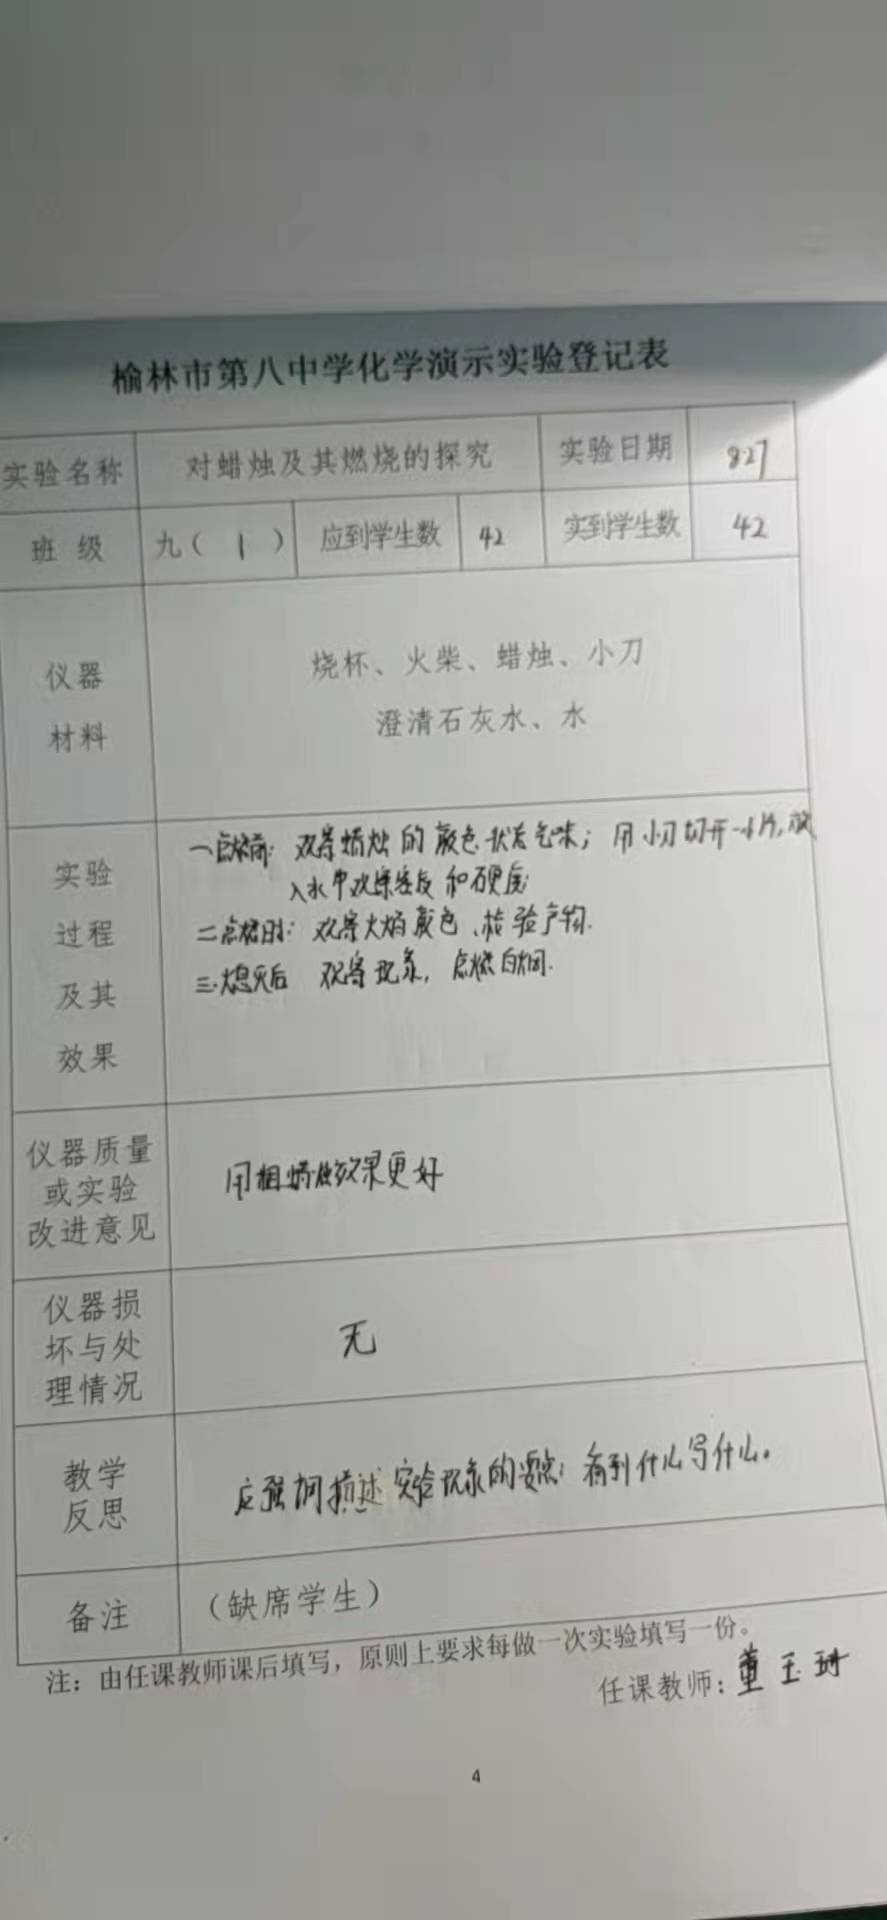 榆林市第八中学化学演示实验登记表
实验名称 对蜡烛及其燃烧的探究 实验日期 8.27
班 级 九( 1 ) 应到学生数 42 实到学生数 42
仪器
材料
烧杯、火柴、蜡烛、小刀
澄清石灰水、水
实验
过程
及其
效果
一.点燃前: 观察蜡烛的颜色.状态气味; 用小刀切开一小片,放
入水中观察密度和硬度
二.点燃时: 观察火焰颜色、检验产物.
三.熄灭后 观察现象, 点燃白烟.
仪器质量
或实验
改进意见
用粗蜡烛效果更好
仪器损
坏与处
理情况
无
教学
反思
应强调描述实验现象的要点: 看到什么写什么。
备注
(缺席学生)
注: 由任课教师课后填写, 原则上要求每做一次实验填写一份。
任课教师: 董玉
4